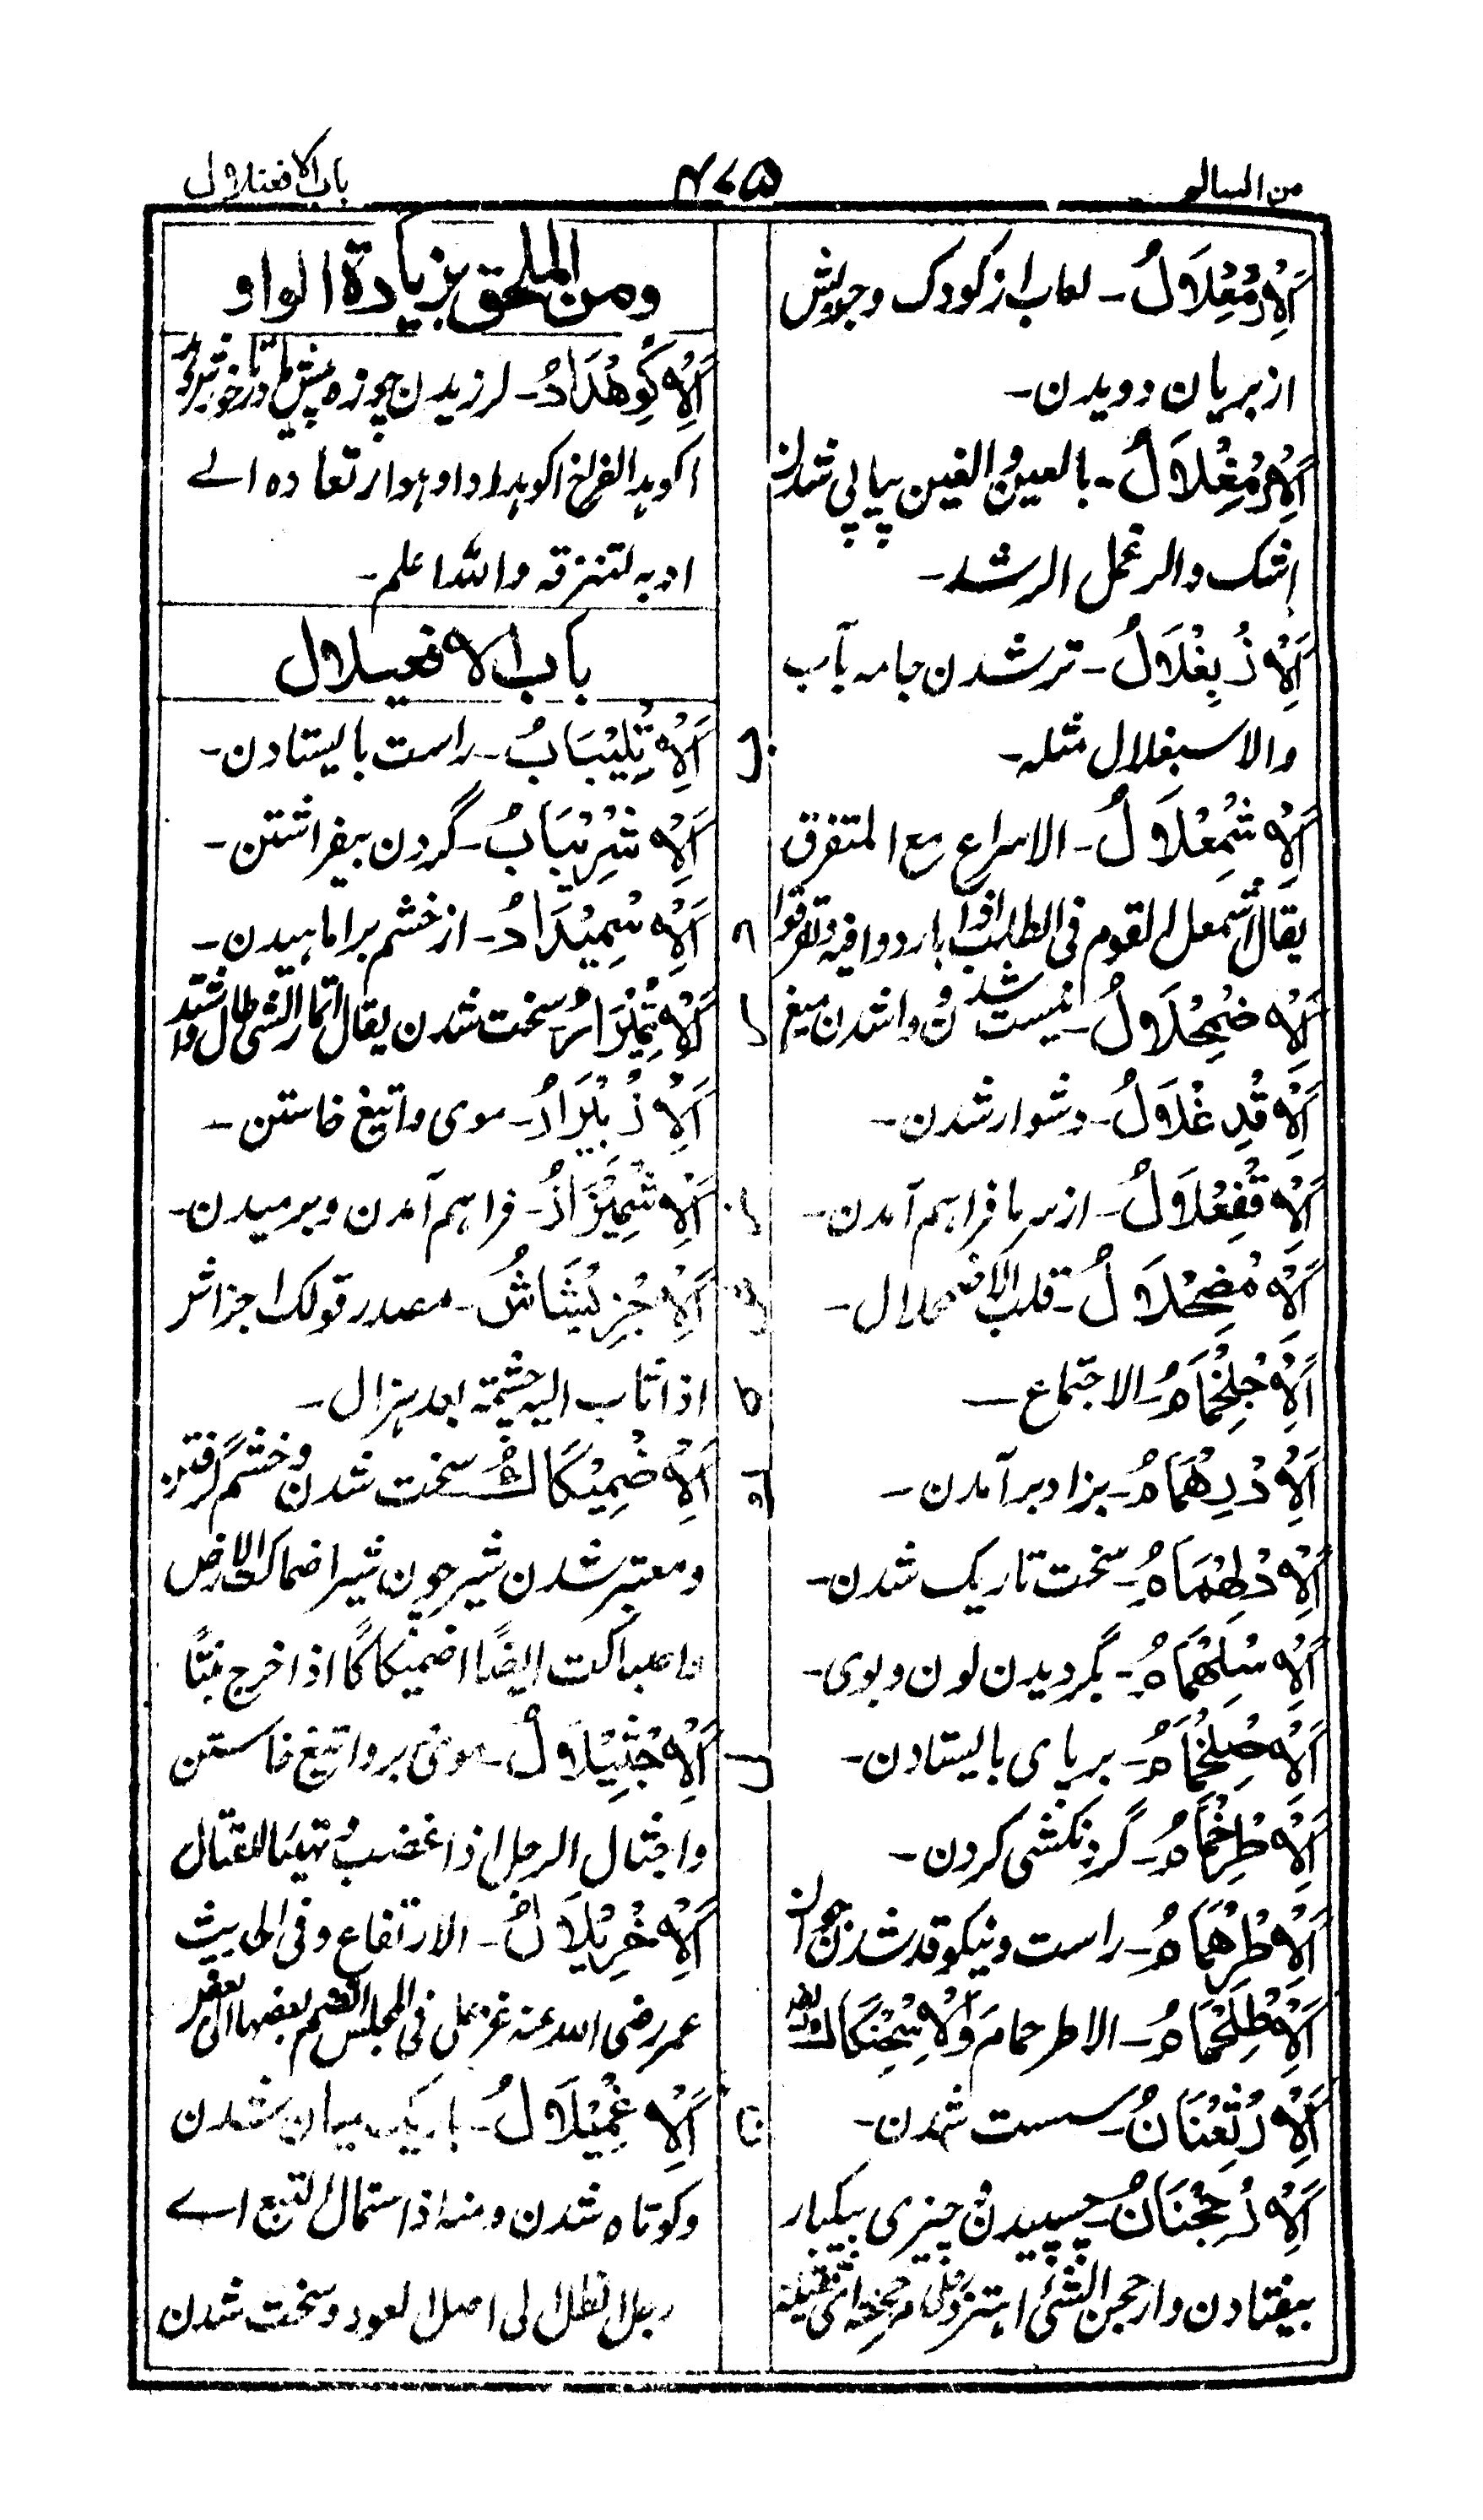 من السالم
۴۷۵
باب الافعنلال
اَلْاِرْمِعْلَالُ۔ لعاب از کودک و چربش
از بریان دویدن۔
اَلْاِرْمِغْلَالُ۔ بالعین والغین پیاپی شدن
اشک والرغمل الرشد۔
اَلْاِذْبِغْلَالُ۔ تر شدن جامہ بآب
والاسبغلال مثلہ۔
اَلْاِشْمِعْلَالُ۔ الاسراع مع المتفرق
یقال اشمعل القوم فی الطلب اذا بادروا فیہ وتفرقوا
اَلْاِضْمِحْلَالُ۔ نیست شدن و واشدن میغ
اَلْاِقْذِعْلَالُ۔ دشوار شدن۔
اَلْاِقْفِعْلَالُ۔ از سرما فراہم آمدن۔
اَلْاِمْضِحْلَالُ۔ قلب الاضمحلال۔
اَلْاِجْلِخْمَامُ۔ الاجتماع۔
اَلْاِدْرِهْمَامُ۔ بزاد برآمدن۔
اَلْاِدْلِهْمَامُ۔ سخت تاریک شدن۔
اَلْاِسْلِهْمَامُ۔ بگردیدن لون و بوی۔
اَلْاِصْلِخْمَامُ۔ برپای بایستادن۔
اَلْاِطْرِخْمَامُ۔ گردنکشی کردن۔
اَلْاِطْرِهْمَامُ۔ راست و نیکو قد شدن جوان
اَلْاِطْلِخْمَامُ۔ الاطرخمام وَالْاِسْحِنْكَاكُ
اَلْاِرْثِعْنَانُ۔ سست شدن۔
اَلْاِرْجِحْنَانُ۔ چسپیدن چیزی بیکبار
بیفتادن وارجحن الشئی اهتز
ومن الملحق بزیادة الواو
اَلْاِكْوِهْدَادُ۔ لرزیدن چوزه پیش مادر تا خورش
اکوہد الفرخ اکوہدادا وہو ارتعاده الے
امہ لتزقہ واللہ اعلم۔
باب الافعیلال
اَلْاِتْلِيْبَابُ۔ راست بایستادن۔
ب
اَلْاِشْرِيْبَابُ۔ گردن بیفراشتن۔
اَلْاِسْمِيْدَادُ۔ از خشم براماہیدن۔
د
اَلْاِتْمِيْرَارُ۔ سخت شدن یقال اتمار الشئ طال واشتد
ر
اَلْاِزْبِيْرَارُ۔ موی واتیغ خاستن۔
اَلْاِشْمِيْزَازُ۔ فراہم آمدن و برمیدن۔
ز
اَلْاِجْرِيْشَاشُ۔ مصدر قولک اجراش
ش
اذا ثاب الیہ جسمہ بعد ہزال۔
اَلْاِضْمِيْكَاكُ۔ سخت شدن و خشم گرفتن
ک
و معتبر شدن شیر چون شیر اضماکت الارض
واضباکت ایضًا اضمیکاکًا اذا خرج نبتًا
اَلْاِجْثِيْلَالُ۔ موی بر واتیغ خاستن
ل
واجثال الرجل اذا غضب وتہیّأ للقتال
اَلْاِخْزِيْلَالُ۔ الارتفاع وفی الحدیث
عمر رضی اللہ عنہ فی المجلس انضم بعضہا الی بعض
اَلْاِسْمِيْلَالُ۔ باریک میان شدن
و کوتاہ شدن ومنہ اذا اسمال التبع اے
رجل الظل الی اصل العود و سخت شدن